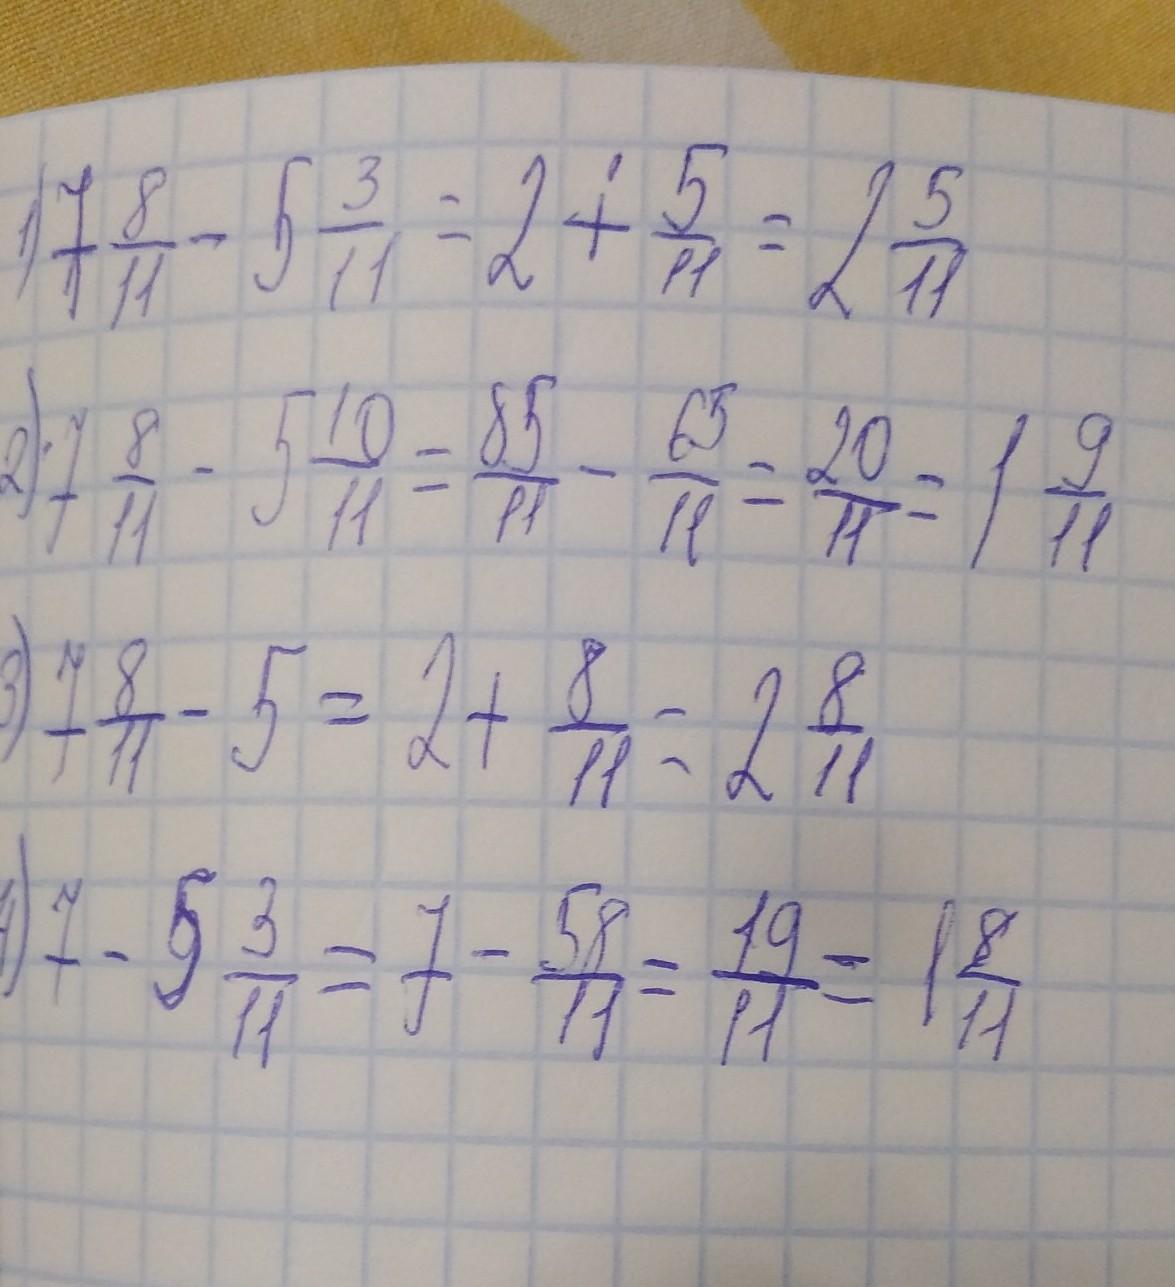 1) 7 8/11 - 5 3/11 = 2 + 5/11 = 2 5/11
2) 7 8/11 - 5 10/11 = 85/11 - 65/11 = 20/11 = 1 9/11
3) 7 8/11 - 5 = 2 + 8/11 = 2 8/11
4) 7 - 5 3/11 = 7 - 58/11 = 19/11 = 1 8/11